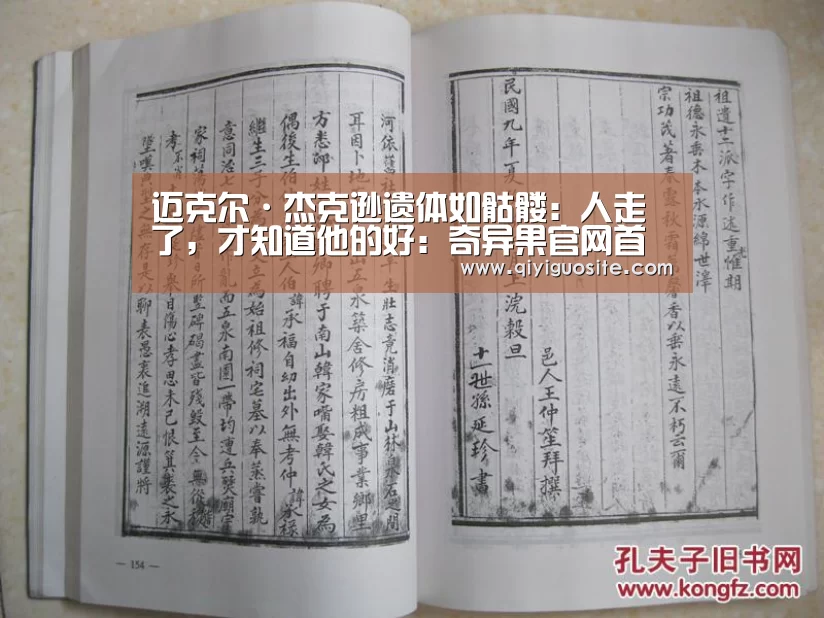 迈克尔·杰克逊遗体如骷髅：人走
了，才知道他的好：奇异果官网首
www.qiyiguosite.com
祖遺十二派字作述重惟期
祖德永垂木本水源綿世澤
宗功茂著春露秋霜馨香以垂永遠不朽云爾
邑人王仲笙拜撰
民國九年夏上浣穀旦
十一世孫延珍書
河依生壯志竟消磨于山林泉石之間
耳因卜地山五泉築舍修房粗成事業鄉里
方悉邵卿聘于南山韓家嘴娶韓氏之女為
偶後生伯人伯諱承福自幼出外無考仲諱承祿
繼生三子立為始祖修祠宅墓以奉蒸嘗孰
意同治亂而五泉南園一帶均遭兵燹廟宇
家祠日所豎碑碣盡皆殘毀至今無從稽
考不目傷心孝思未已恨箕裘之未
墜嘆之無存是以聊表愚衷追溯遠源謹將
— 154 —
孔夫子旧书网
www.kongfz.com